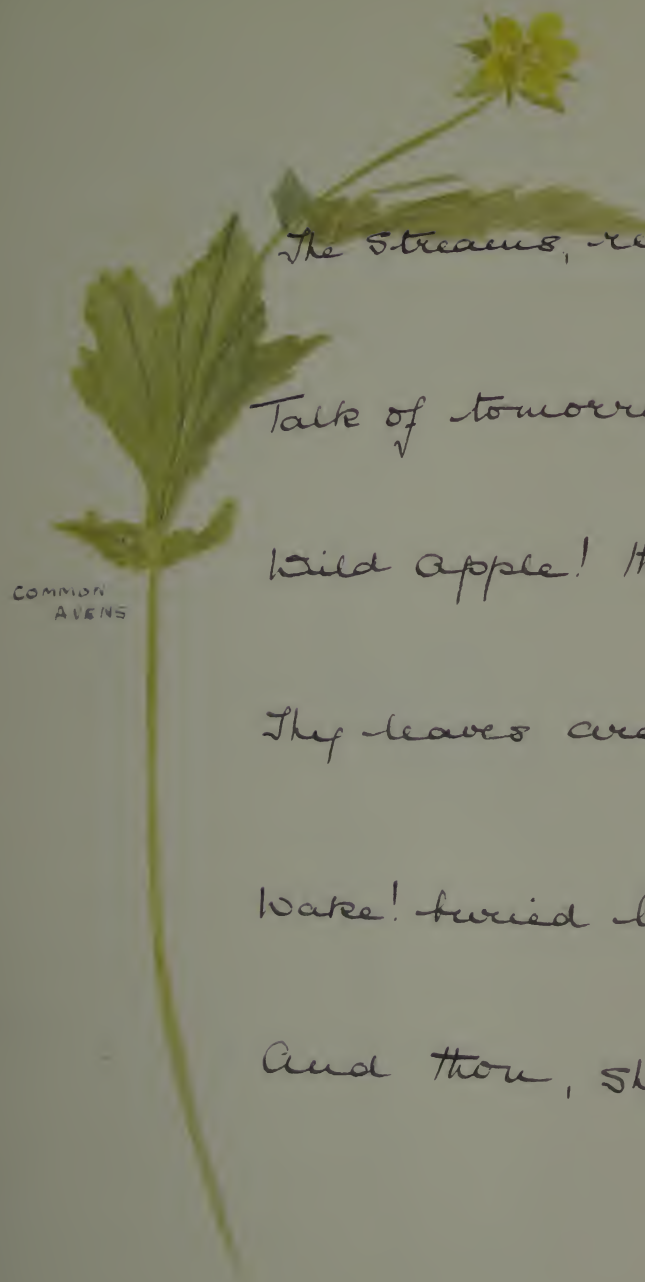 The Streams, re
Talk of tomorr
Wild apple!
Thy leaves are
Wake! buried
And thou, sh
COMMON
AVENS